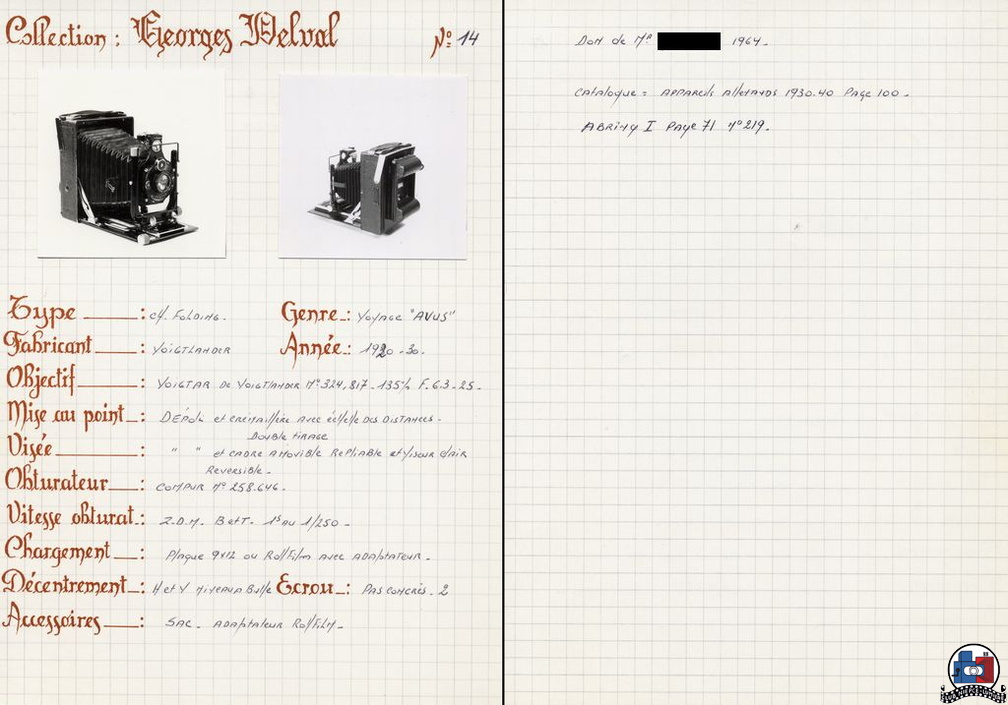 Collection : Georges Delval Nº 14
Type : ch. Folding. Genre : Voyage "AVUS"
Fabricant : Voigtlander Année : 1920-30.
Objectif : Voigtar de Voigtlander Nº 324,817 - 135% F. 6.3 - 25 -
Mise au point : Dépoli et crémaillère avec échelle des distances.
Double tirage
Visée : " " et cadre amovible repliable et viseur clair
Reversible -
Obturateur : Compur Nº 258.646.
Vitesse obturat. : Z.D.M. B et T. 1s au 1/250 -
Chargement : Plaque 9x12 ou Rollfilm avec adaptateur -
Décentrement : H et V niveau Bulle Ecrou : Pas congrès. 2
Accessoires : SAC - Adaptateur Rollfilm -
Don de Mr 1964 -
Catalogue = Appareils Allemands 1930.40 Page 100 -
ABRING I Page 71 Nº 219.